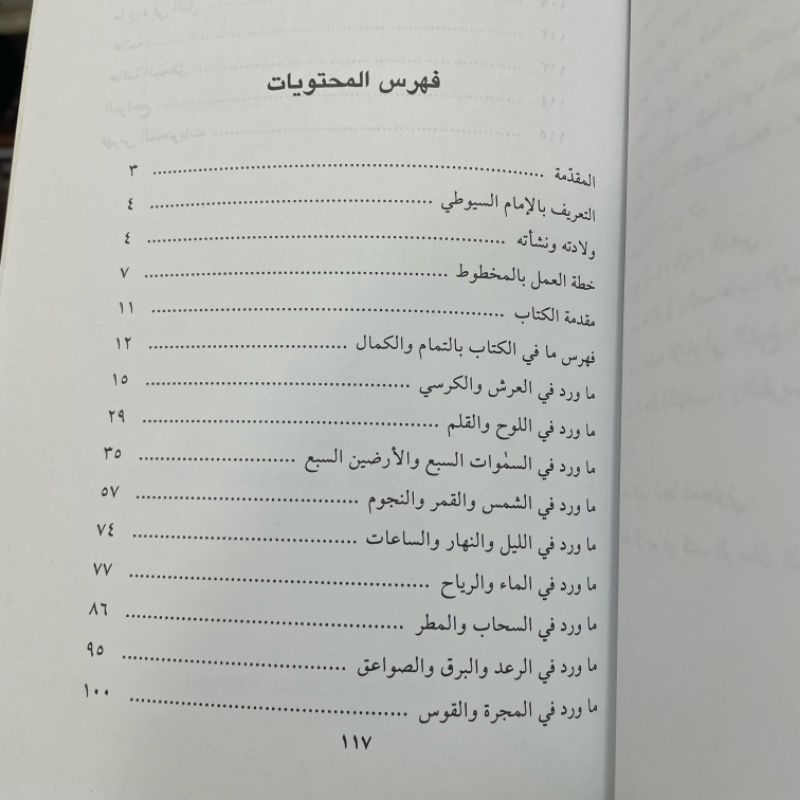 فهرس المحتويات
المقدّمة ........................................ ٣
التعريف بالإمام السيوطي ........................................ ٤
ولادته ونشأته ........................................ ٤
خطة العمل بالمخطوط ........................................ ٧
مقدمة الكتاب ........................................ ١١
فهرس ما في الكتاب بالتمام والكمال ........................................ ١٢
ما ورد في العرش والكرسي ........................................ ١٥
ما ورد في اللوح والقلم ........................................ ٢٩
ما ورد في السمٰوات السبع والأرضين السبع ........................................ ٣٥
ما ورد في الشمس والقمر والنجوم ........................................ ٥٧
ما ورد في الليل والنهار والساعات ........................................ ٧٤
ما ورد في الماء والرياح ........................................ ٧٧
ما ورد في السحاب والمطر ........................................ ٨٦
ما ورد في الرعد والبرق والصواعق ........................................ ٩٥
ما ورد في المجرة والقوس ........................................ ١٠٠
١١٧